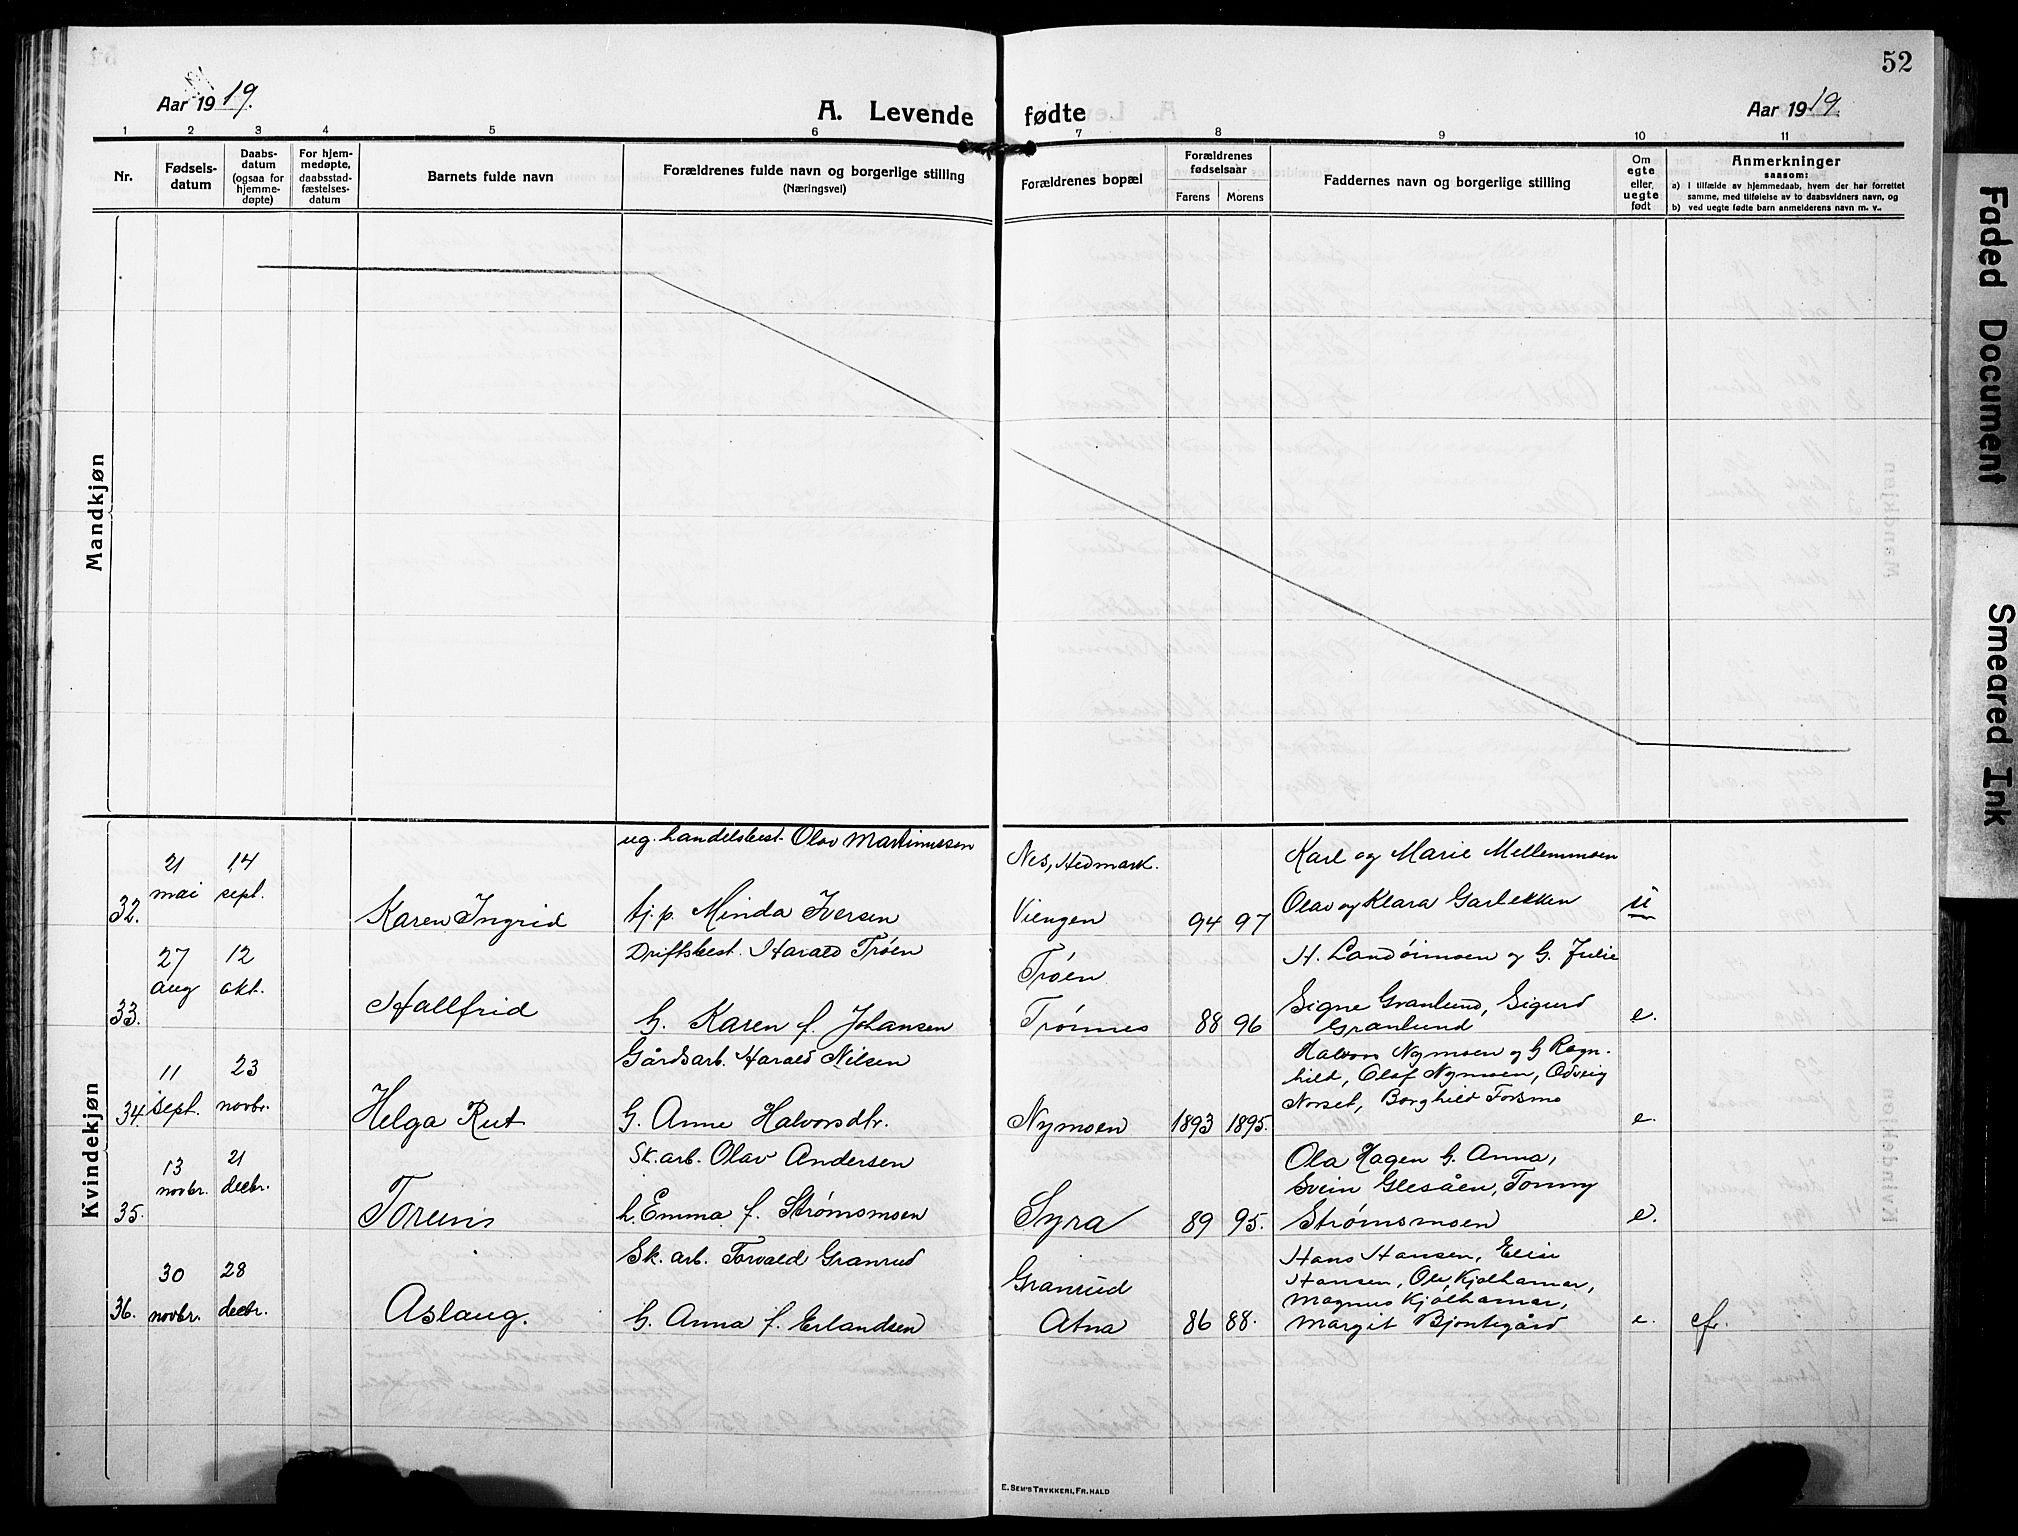 52
Aar 1919.
A. Levende fødte
Aar 1919.
1 2 3 4 5 6 7 8 9 10 11
Nr.
Fødsels-
datum
Daabs-
datum
(ogsaa for
hjemme-
døpte)
For hjem-
medøpte,
daabsstad-
fæstelses-
datum
Barnets fulde navn
Forældrenes fulde navn og borgerlige stilling
(Næringsvei)
Forældrenes bopæl
Forældrenes
fødselsaar
Farens Morens
Faddernes navn og borgerlige stilling
Om
egte
eller
uegte
født
Anmerkninger
saasom:
a) i tilfælde av hjemmedaab, hvem der har forrettet
samme, med tilføielse av to daabsvidners navn, og
b) ved uegte fødte barn anmelderens navn m. v..
Mandkjøn
Kvindekjøn
ug. handelsbest. Olav Martinussen
Nes, Hedmark.
Karl og Marie Mellemmoen
21 14
mai sept.
32. Karen Ingrid tj. p. Minda Iversen
Viengen 94 97 Olav og Klara Garbekken u
27 12 Driftsbest. Harald Trøen
Trøen
H. Landøimoen og G. Julie
aug okt.
33. Hallfrid G. Karen f. Johansen
Trønnes 88 96
Signe Granlund, Sigurd
Granlund e.
11 23 Gårdsarb. Harald Nilsen
Halvor Nymoen og G Ragn-
hild, Olaf Nymoen, Odveig
34. sept. novbr. Helga Rut G. Anne Halvorsdtr.
Nymoen 1893 1895.
Norset, Borghild Forsmo e.
13 21 Sk. arb. Olav Andersen
Ola Hagen G. Anna,
novbr. decbr.
Svein Glesåen, Tommy
35. Torun h. Emma f. Strømsmoen
Syra 89 95. Strømsmoen e.
30 28 Sk. arb. Torvald Granrud
Granrud
Hans Hansen, Elise
Hansen, Ole Kjølhamar,
Magnus Kjølhamar,
36. novbr. decbr. Aslaug. G. Anna f. Erlandsen
Atna 86 88. Margit Bjontegård e. cfr.
E. SEM'S TRYKKERI, FR. HALD
Faded Document
Smeared Ink